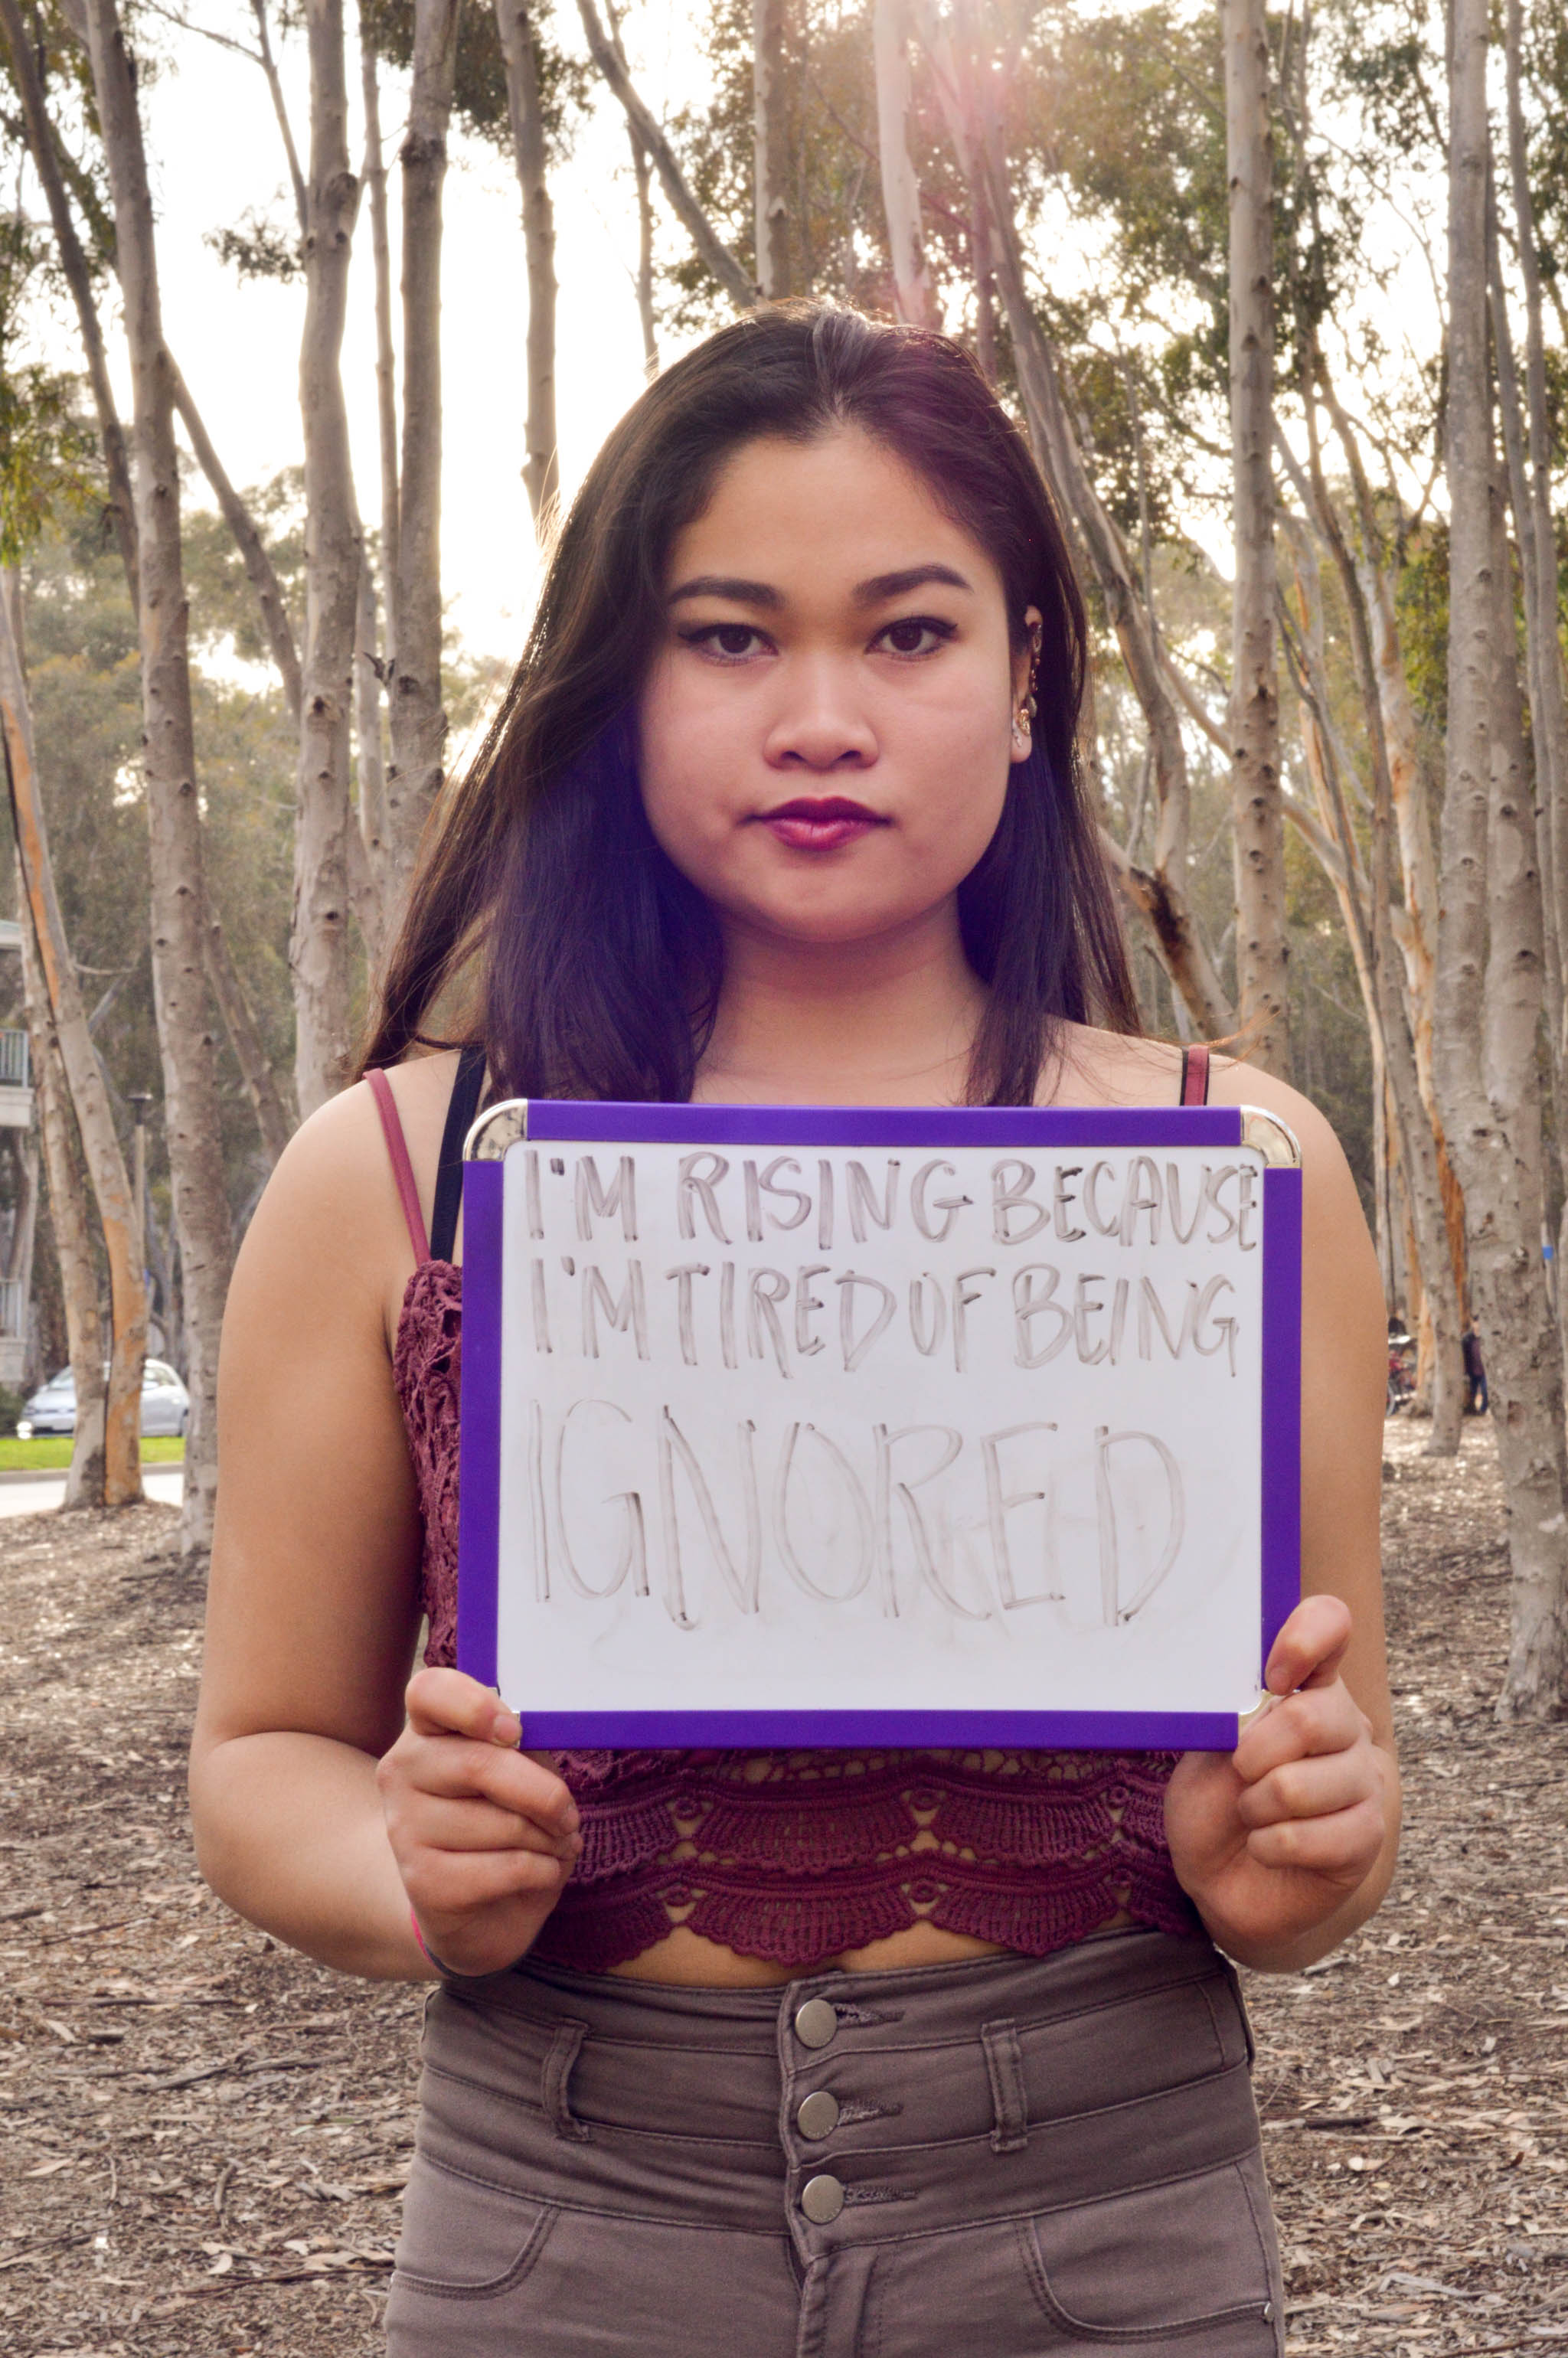 I'M RISING BECAUSE
I'M TIRED OF BEING
IGNORED